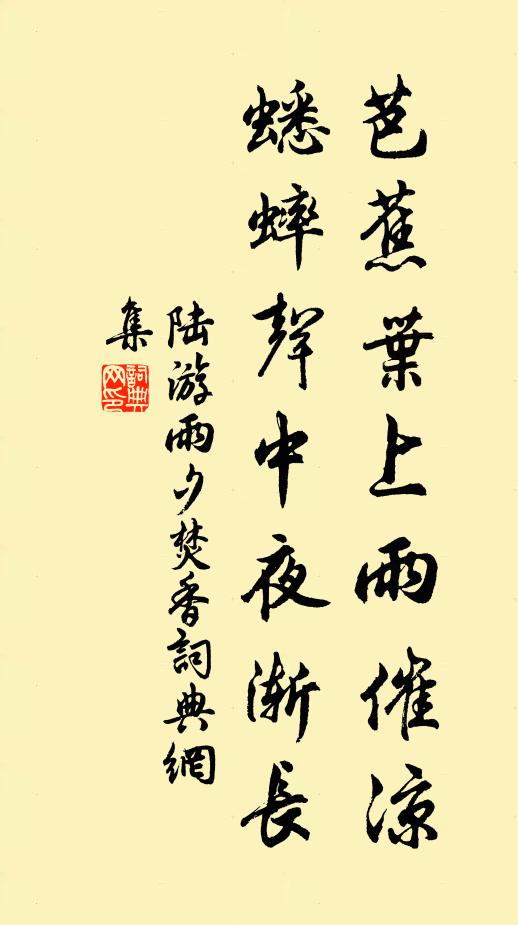 芭蕉葉上雨催涼
蟋蟀聲中夜漸長
陸游雨夕焚香詞典網
集
詞典網印